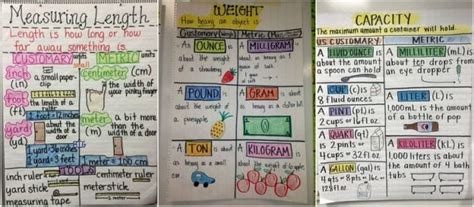 Measuring Length
Length is how long or how
far away something is.
CUSTOMARY units
METRIC units
inch (in)
a small paper-clip
centimeter (cm)
the width of your pinky finger
foot (ft)
the length of a ruler
1 foot = 12 inches
yard (yd)
about the width of a door
meter (m)
a bit more than the width of a door
1 yard = 36 inches
1 yard = 3 feet
TOOLS
inch ruler
yard stick
measuring tape
centimeter ruler
meter stick
WEIGHT
How heavy an object is
Customary
Metric
An OUNCE is
about the weight
of a strawberry
A MILLIGRAM is
about as
heavy as a
A POUND is
about the weight of
a pineapple
A GRAM is
about the
weight of a
A TON is
about as
heavy as a small
car
A KILOGRAM is
about as heavy as
CAPACITY
The maximum amount a container will hold
US CUSTOMARY
METRIC
A FLUID OUNCE (fl oz) is
about the amount
a spoon can hold
A MILLILITER (mL) is
about ten drops from
an eye dropper
A CUP (c) is
8 fluid ounces
A PINT (pt) is
2 cups or 16 fl oz
A QUART (qt)
is 2 pints or
4 cups or 32 fl oz
A GALLON (gal) is
4 qts = 8 pts = 16 c
A LITER (L) is
1,000mL is the amount
of a bottle of pop
A KILOLITER (kL) is
1,000 liters is about
the amount of 4 bath
tubs